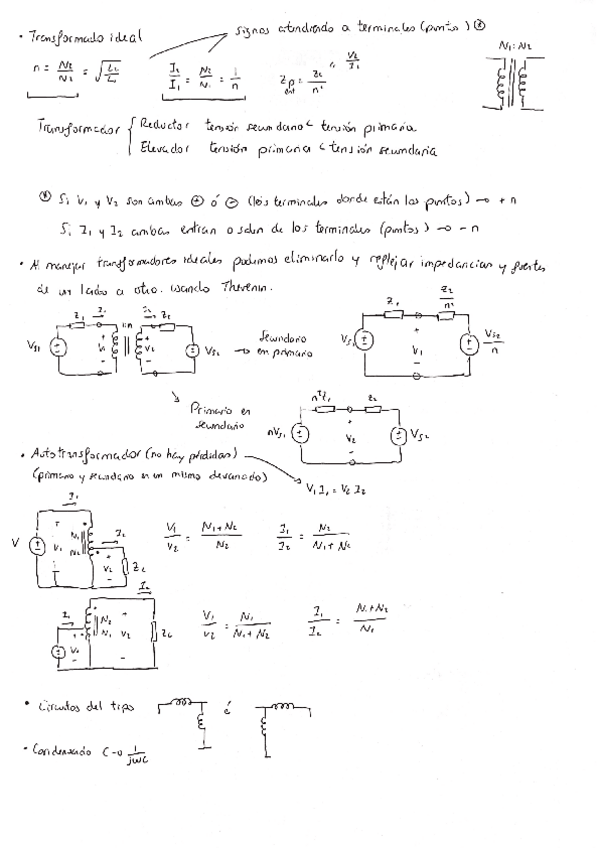 · Transformado ideal
signos atendiendo a terminales (puntos) ⊛
n = N2/N1 = √(L2/L1)
I2/I1 = N2/N1 = 1/n
Zp = ZL/n²
V2/I1
N1:N2
Transformador { Reductor tensión secundario < tensión primaria
Elevador tensión primaria < tensión secundaria
⊛ Si V1 y V2 son ambas ⊕ ó ⊖ (los terminales donde están los puntos) → + n
Si I1 y I2 ambas entran o salen de los terminales (puntos) → - n
· Al manejar transformadores ideales podemos eliminarlo y reflejar impedancias y fuentes
de un lado a otro. usando Thevenin.
Z1 I1 1:n I2 Z2
Vs1 + V1 - + V2 - Vs2
→ secundario
en primario
Z1 Z2/n²
Vs1 + V1 - Vs2/n
Primario en
secundario
n²Z1 Z2
nVs1 + V2 - Vs2
· Autotransformador (no hay pérdidas)
(primario y secundario en un mismo devanado)
V1 I1 = V2 I2
I1
V + V1 - N1 N2 I2 + V2 - ZL
V1/V2 = (N1+N2)/N2
I1/I2 = N2/(N1+N2)
I2
I1 N2 N1 + V2 - ZL
V1/V2 = N1/(N1+N2)
I1/I2 = (N1+N2)/N1
· Circuitos del tipo é
· Condensando C → 1/jωC